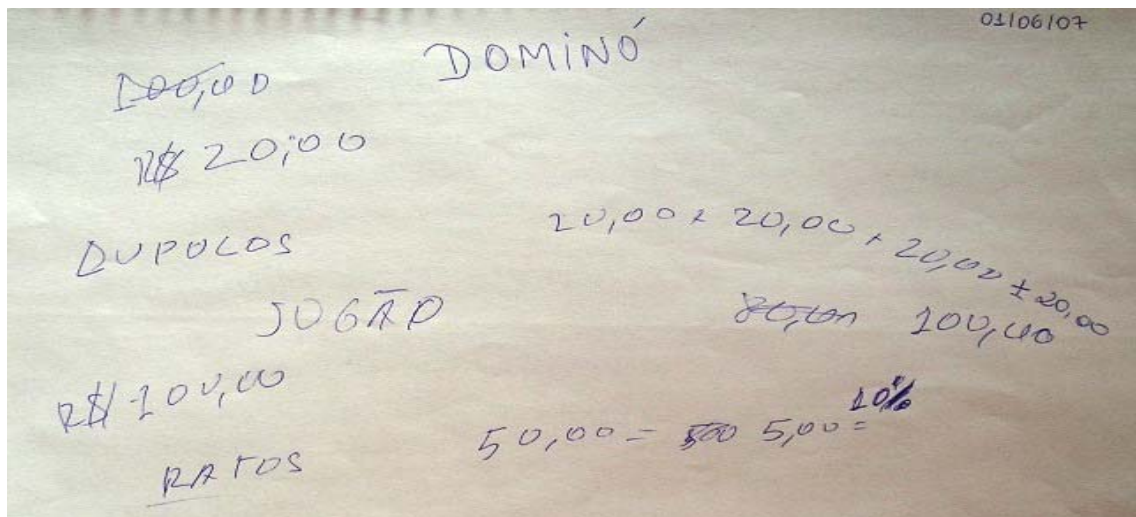 01/06/07
DOMINÓ
100,00
R$ 20,00
DUPOLOS
20,00 + 20,00 + 20,00 + 20,00
JOGÃO
80,00 100,00
R$ 100,00
50,00 = 500 5,00 = 10%
RATOS